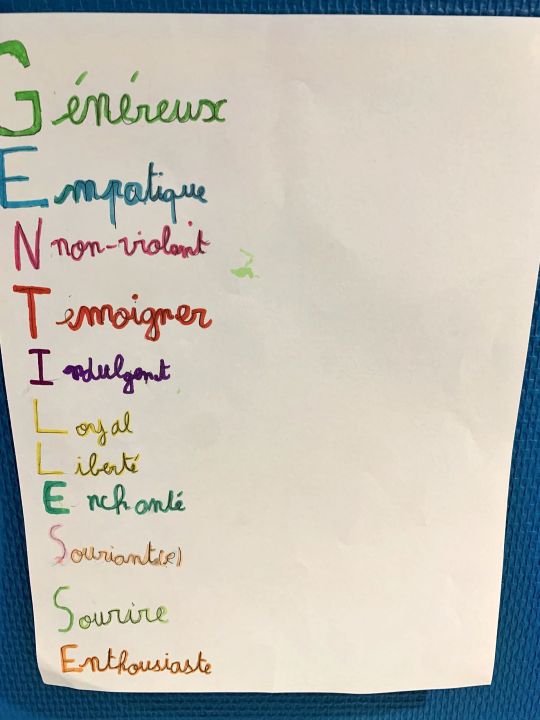 Généreux
Empatique
N non-violant
Témoigner
Indulgent
Loyal
Liberté
Enchanté
Souriant(e)
Sourire
Enthousiaste